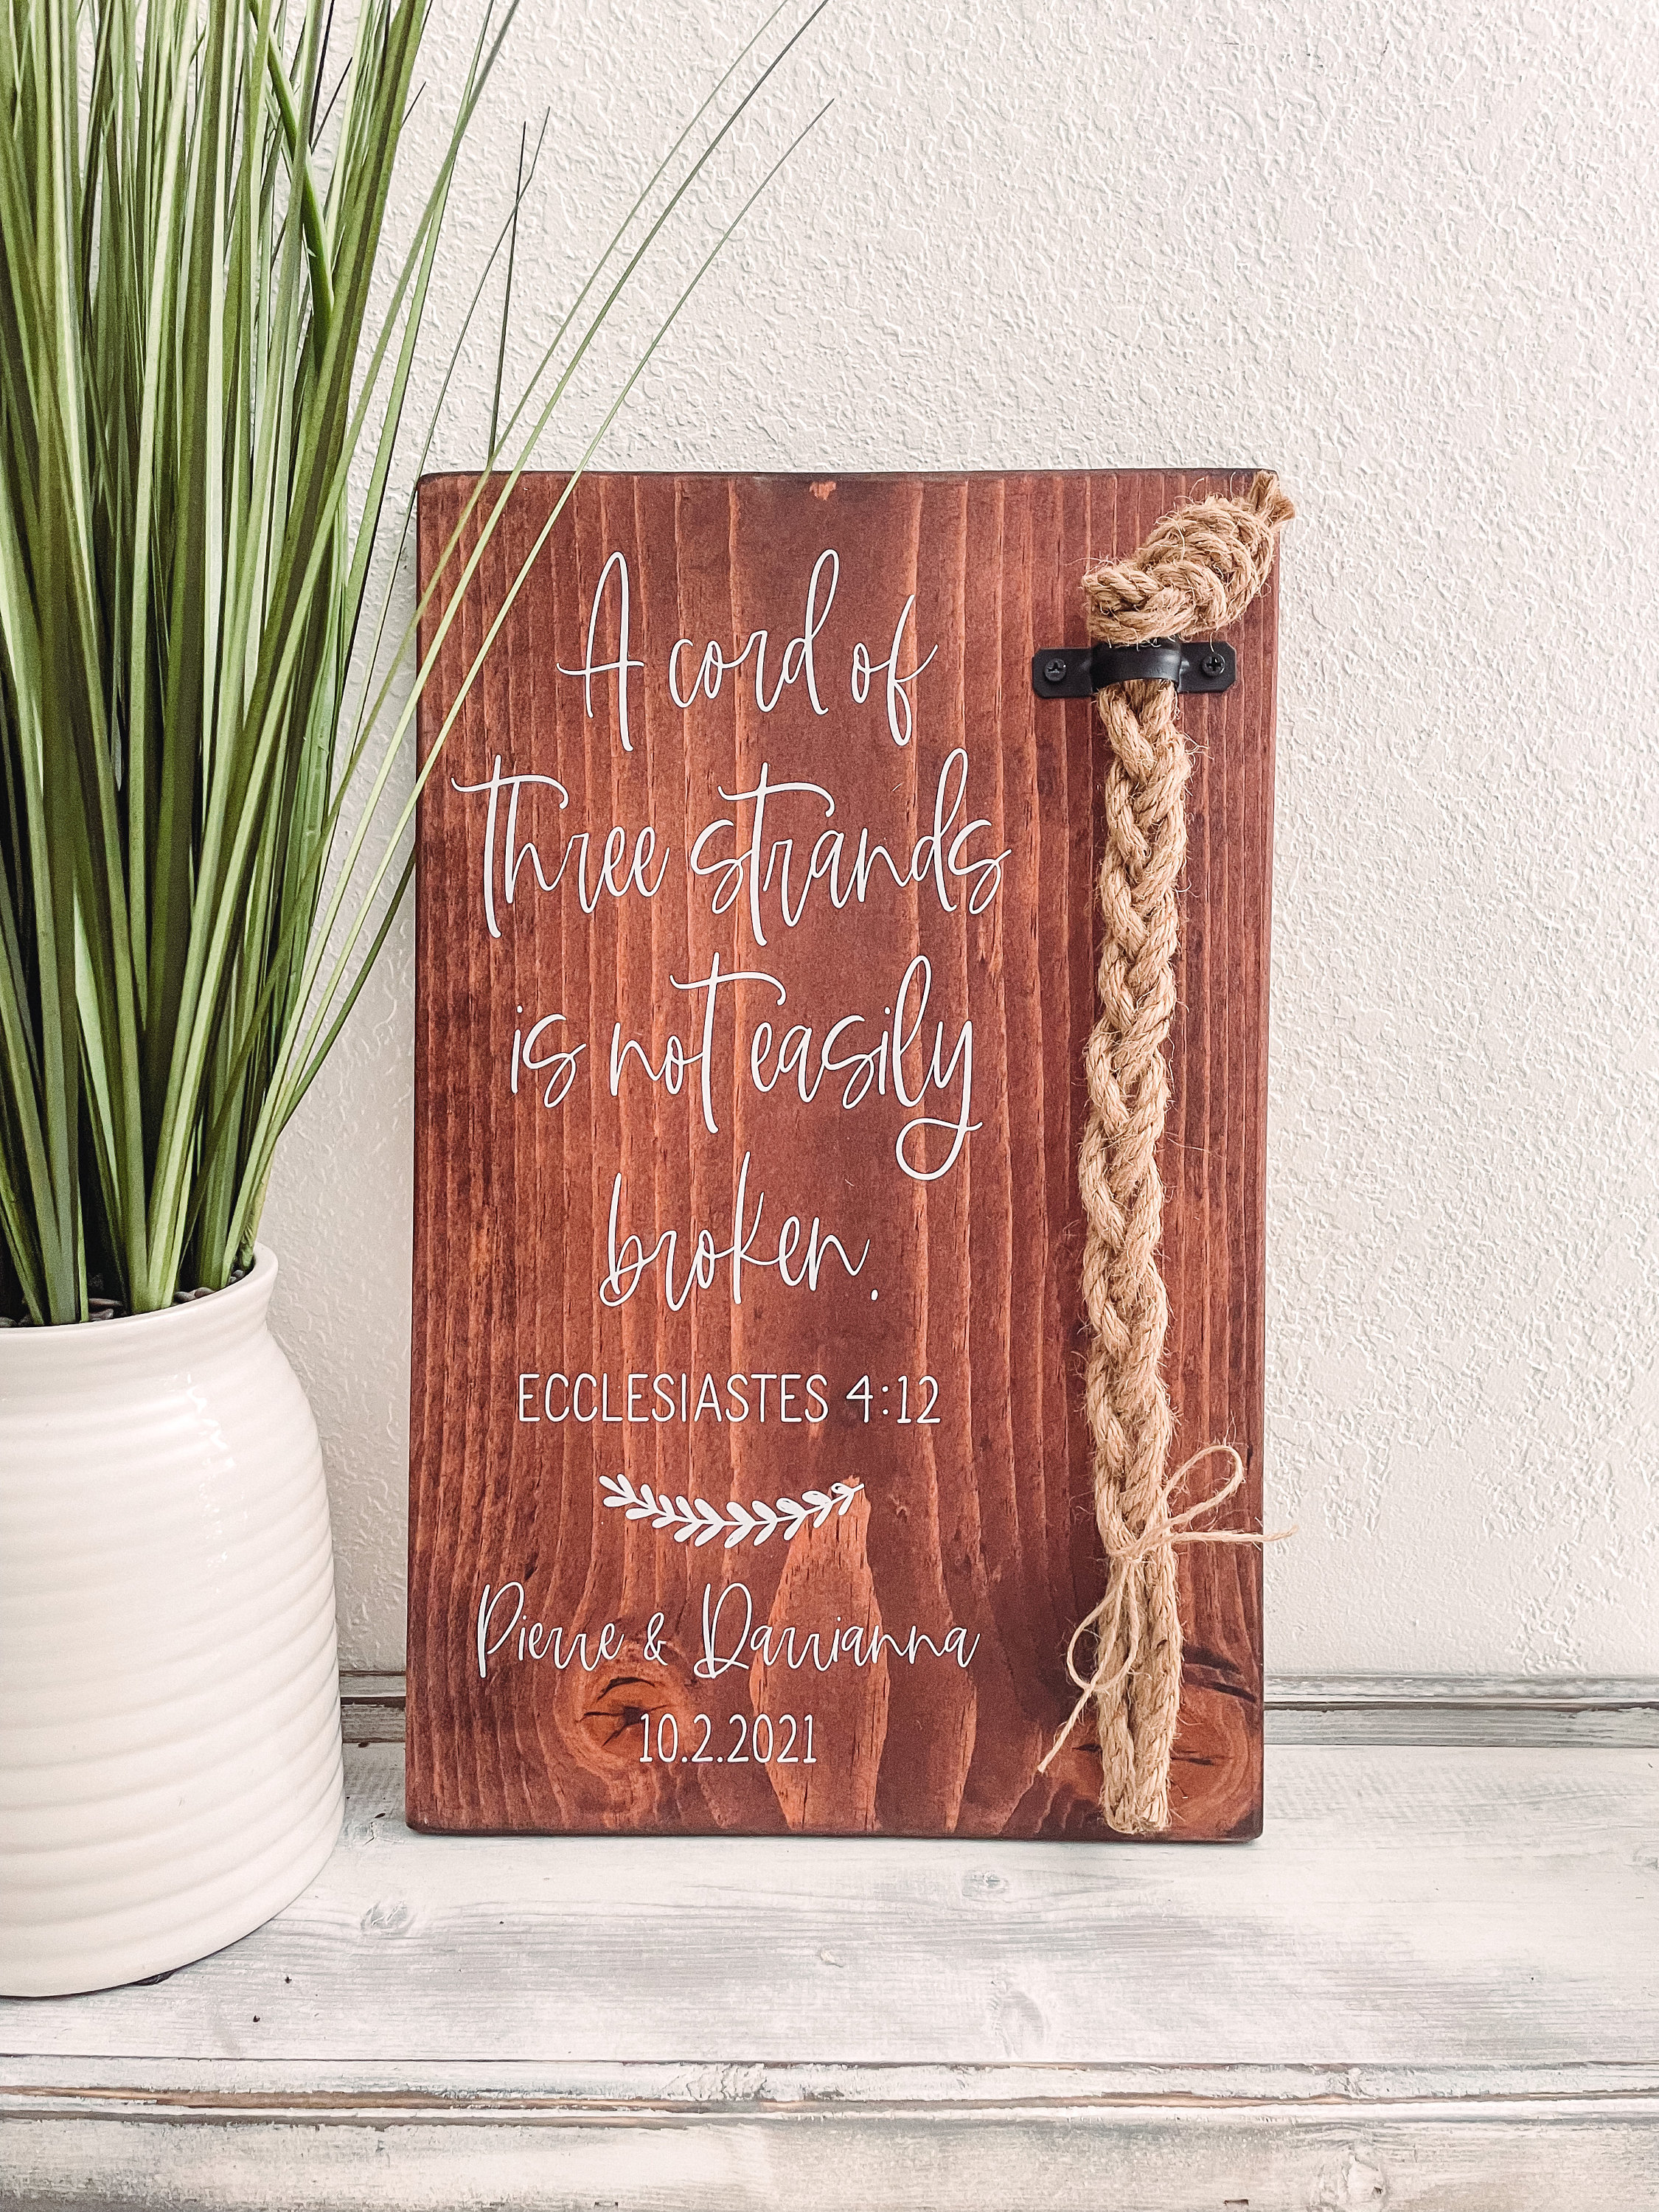 A cord of
Three strands
is not easily
broken.
ECCLESIASTES 4:12
Pierre & Darrianna
10.2.2021